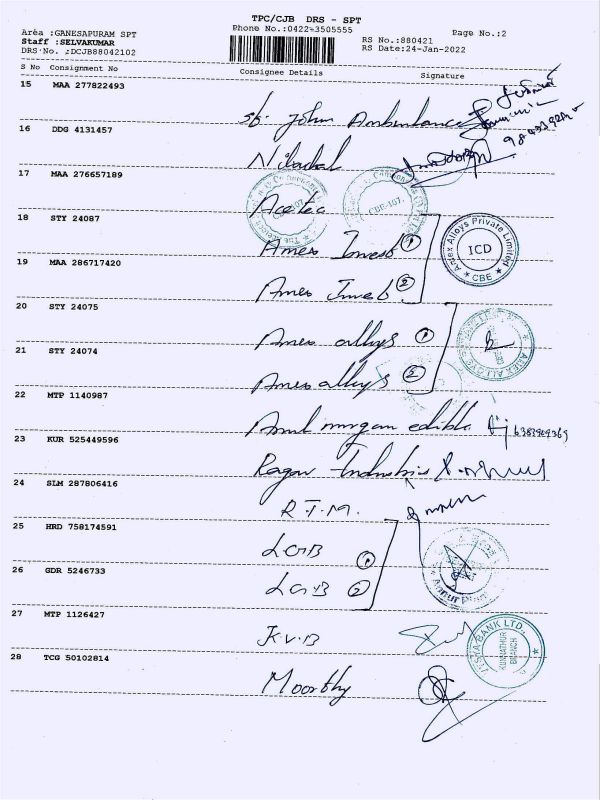 TPC/CJB DRS - SPT
Phone No.:0422-3505555
Page No.:2
Area :GANESAPURAM SPT
Staff :SELVAKUMAR
DRS No. :DCJB88042102
RS No.:880421
RS Date:24-Jan-2022
S No Consignment No Consignee Details Signature
15 MAA 277822493
St. John Ambulance
16 DDG 4131457
17 MAA 276657189
Acetec
CBE-107.
18 STY 24087
Amex Invest 1
Amex Alloys Private Limited
ICD
CBE
19 MAA 286717420
Amex Invest 2
20 STY 24075
Amex alloys 1
21 STY 24074
Amex alloys 2
22 MTP 1140987
murgan edible
23 KUR 525449596
Ragav Industries
24 SLM 287806416
R.T.M.
25 HRD 758174591
LGB 1
26 GDR 5246733
LGB 2
27 MTP 1126427
K.V.B
BANK LTD.
BRANCH
28 TCG 50102814
Moorthy